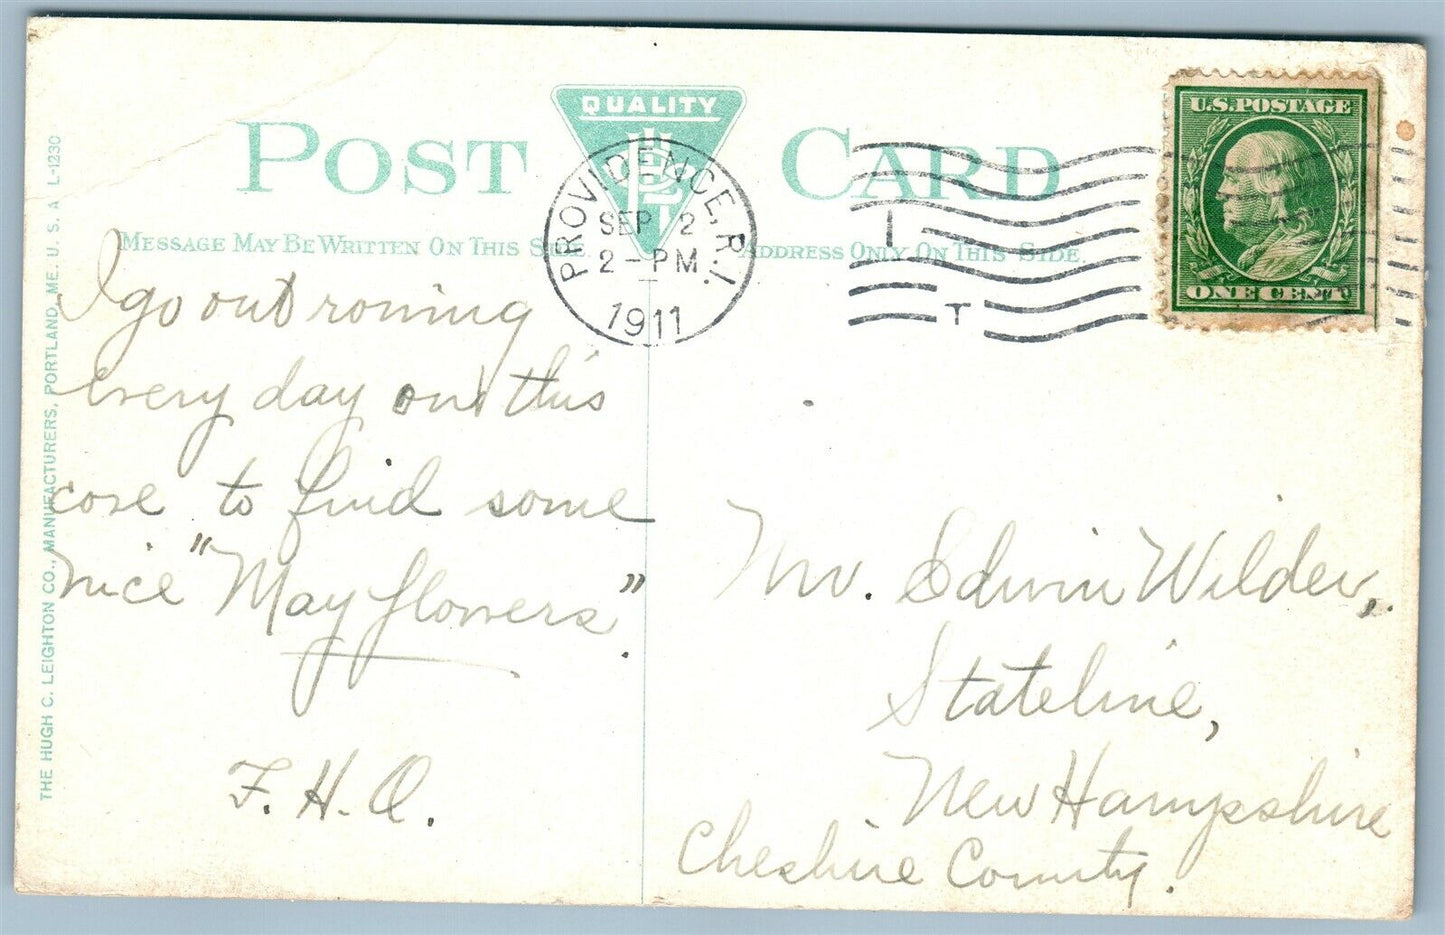 QUALITY
POST CARD
MESSAGE MAY BE WRITTEN ON THIS SIDE.
ADDRESS ONLY ON THIS SIDE.
PROVIDENCE, R.I.
SEP 2
2 - PM
1911
U.S. POSTAGE
ONE CENT
THE HUGH C. LEIGHTON CO., MANUFACTURERS, PORTLAND, ME. U. S. A. L-1230
I go out rowing
every day on this
cove to find some
nice "May flowers".
F. H. O.
Mr. Edwin Wilder,
Stateline,
New Hampshire
Cheshire County.